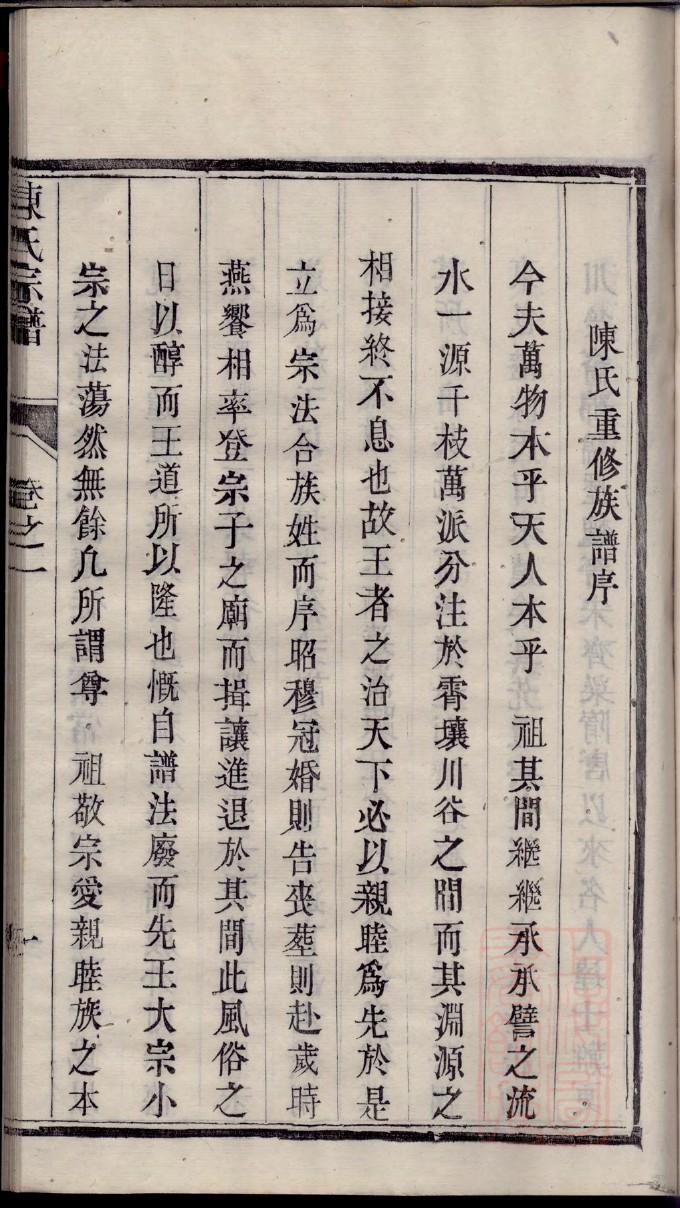 陳氏重修族譜序
今夫萬物本乎天人本乎　祖其間繼繼承承譬之流
水一源千枝萬派分注於霄壤川谷之間而其淵源之
相接終不息也故王者之治天下必以親睦為先於是
立為宗法合族姓而序昭穆冠婚則告喪塟則赴歲時
燕饗相率登宗子之廟而揖讓進退於其間此風俗之
日以醇而王道所以隆也慨自譜法廢而先王大宗小
宗之法蕩然無餘凢所謂尊　祖敬宗愛親睦族之本
陳氏宗譜
卷之一
一